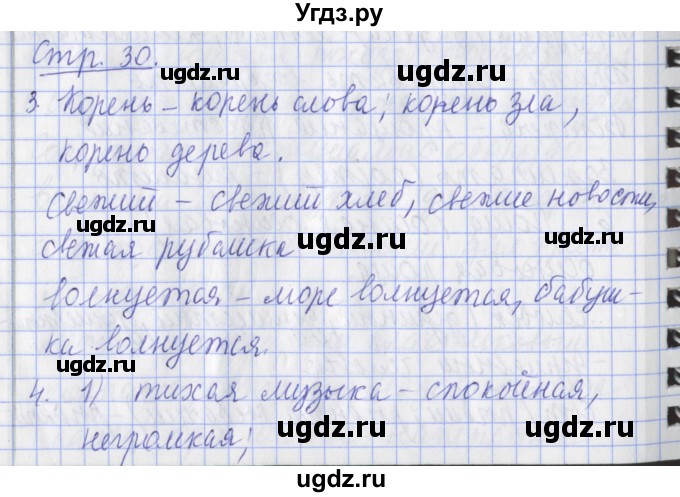 Угдз.ру
Стр. 30.
ugdz.ru ugdz.ru
3. Корень – корень слова; корень зла,
корень дерева.
ugdz.ru ugdz.ru
Свежий – свежий хлеб, свежие новости,
свежая рубашка
ugdz.ru ugdz.ru ugdz.ru
волнуется – море волнуется, бабуш-
ка волнуется.
ugdz.ru ugdz.ru
4. 1) тихая музыка – спокойная,
негромкая;
ugdz.ru ugdz.ru
ugdz.ru